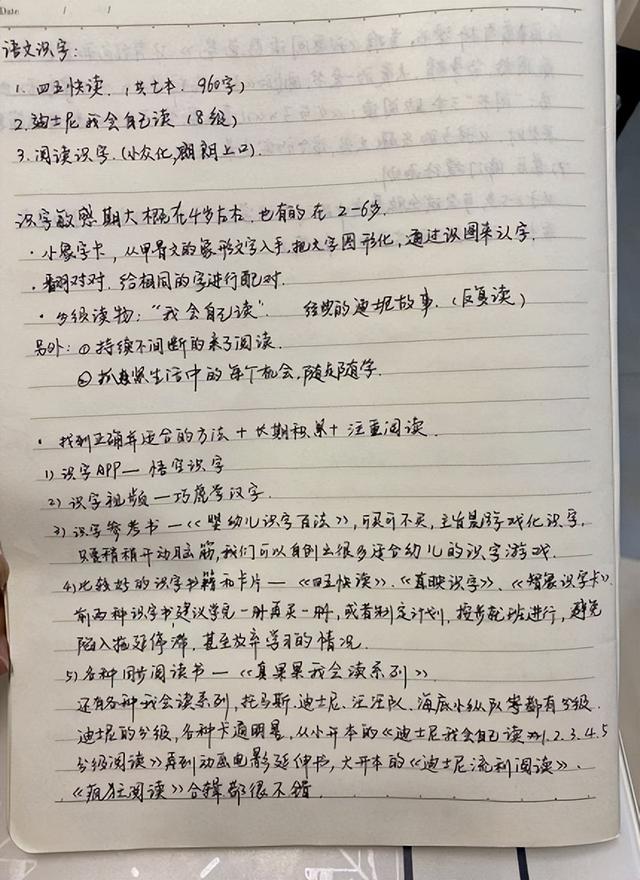 Date
语文识字:
1. 四五快读. (共七本. 960字)
2. 迪士尼 我会自己读 (8级)
3. 阅读识字. (小众化, 朗朗上口).
识字敏感期大概在4岁左右. 也有的在 2-6岁.
· 小象字卡, 从甲骨文的象形文字入手, 把文字图形化, 通过识图来认字.
· 翻翻对对. 给相同的字进行配对.
· 分级读物: “我会自己读”. 经典的迪妮故事. (反复读)
另外: ① 持续不间断的亲子阅读.
② 抓紧生活中的每个机会, 随走随学.
· 找到正确并适合的方法 + 长期积累 + 注重阅读.
1) 识字APP — 悟空识字
2) 识字视频 — 巧虎学汉字.
3) 识字参考书 — 《婴幼儿识字百法》, 可买可不买, 主旨是游戏化识字.
只要稍稍开动脑筋, 我们可以自创出很多适合幼儿的识字游戏.
4) 比较好的识字书籍和卡片 — 《四五快读》、《直映识字》、《智象识字卡》
前两种识字书建议学完一册再买一册, 或者制定计划, 按步就班进行, 避免
陷入拖延停滞, 甚至放弃学习的情况.
5) 各种同步阅读书 — 《真果果我会读系列》.
还有各种我会读系列, 托马斯. 迪士尼. 汪汪队. 海底小纵队等都有分级.
迪士尼的分级, 各种卡通明星. 从小开本的《迪士尼我会自己读》1.2.3.4.5
分级阅读》再到动画电影延伸书, 大开本的《迪士尼流利阅读》、
《疯狂阅读》合辑都很不错.